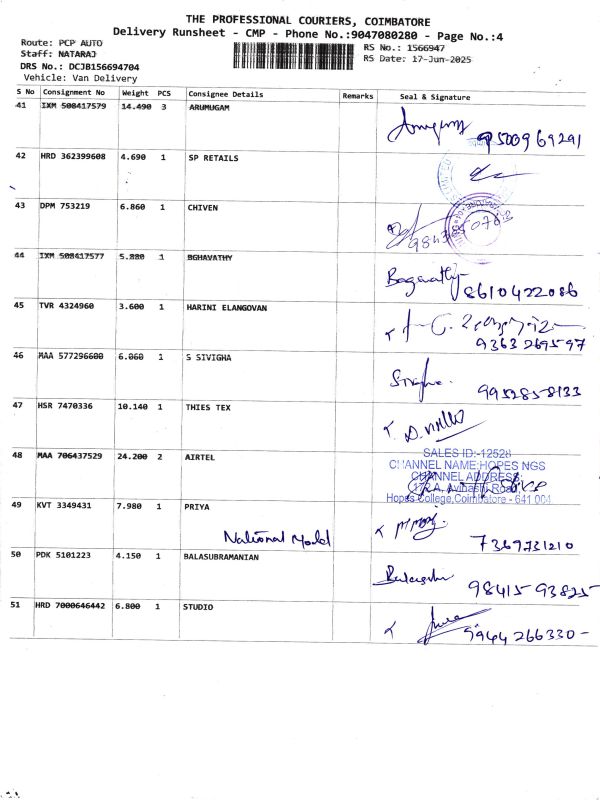 THE PROFESSIONAL COURIERS, COIMBATORE
Delivery Runsheet - CMP - Phone No.:9047080280 - Page No.:4
Route: PCP AUTO
Staff: NATARAJ
RS No.: 1566947
DRS No.: DCJB156694704
RS Date: 17-Jun-2025
Vehicle: Van Delivery
S No Consignment No Weight PCS Consignee Details Remarks Seal & Signature
41 IXM 508417579 14.490 3 ARUMUGAM
9500969291
42 HRD 362399608 4.690 1 SP RETAILS
43 DPM 753219 6.860 1 CHIVEN
44 IXM 508417577 5.880 1 BGHAVATHY
Bagavathy 8610422086
45 TVR 4324960 3.600 1 HARINI ELANGOVAN
9363 269597
46 MAA 577296600 6.060 1 S SIVIGHA
9952858133
47 HSR 7470336 10.140 1 THIES TEX
48 MAA 706437529 24.200 2 AIRTEL
SALES ID:-12528
CHANNEL NAME:HOPES NGS
CHANNEL ADDRESS:
Avinashi Road
Hopes College,Coimbatore - 641 004
49 KVT 3349431 7.980 1 PRIYA
National Model
7369731210
50 PDK 5101223 4.150 1 BALASUBRAMANIAN
98415 93825
51 HRD 7000646442 6.800 1 STUDIO
9944 266330